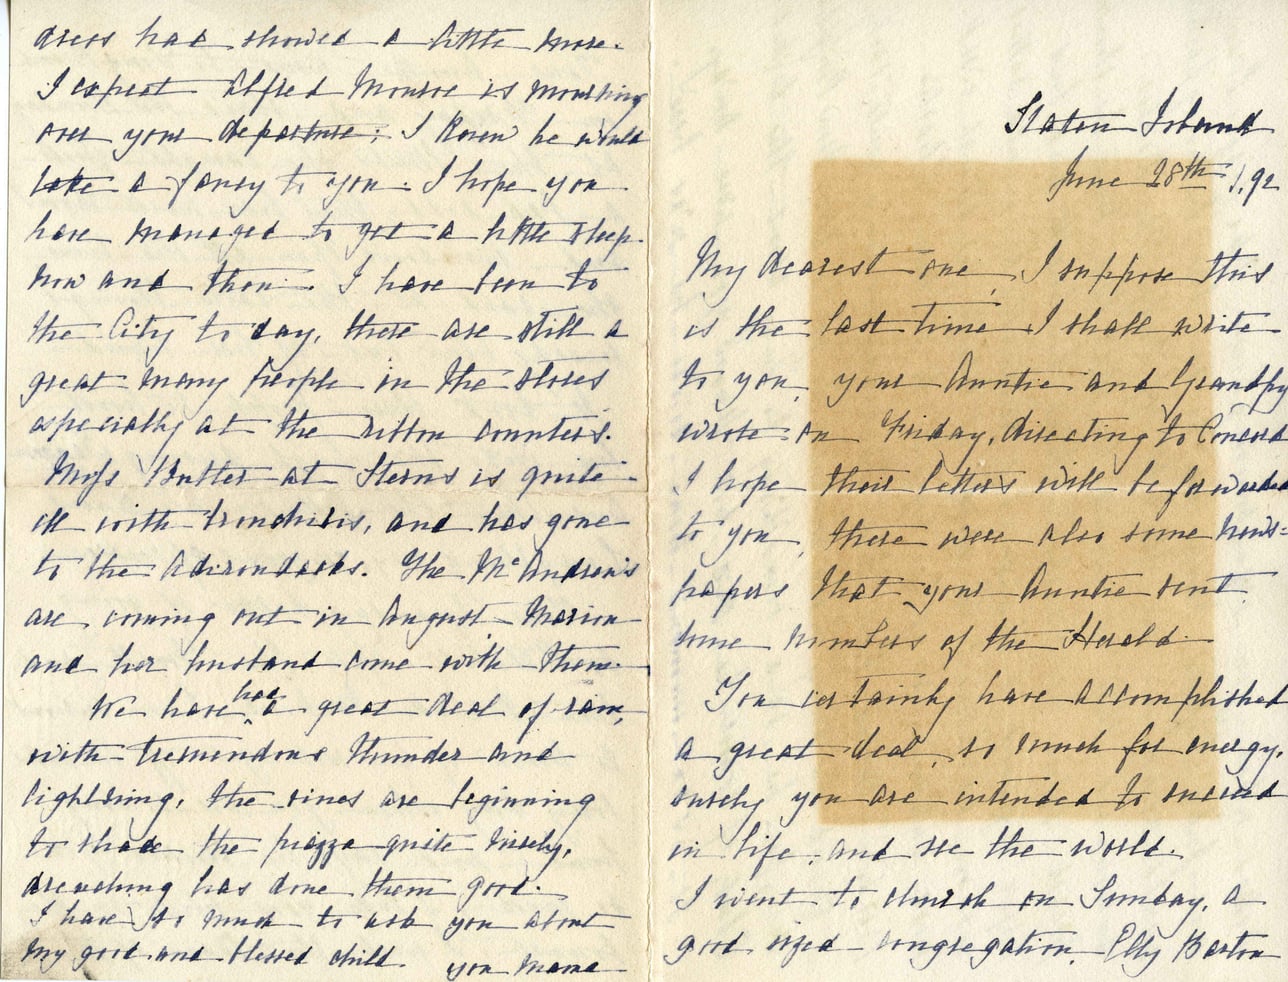 dress had showed a little more.
I expect Alfred Monroe is mourning
over your departure; I know he would
take a fancy to you. I hope you
have managed to get a little sleep
now and then. I have been to
the City to day, there are still a
great many People in the stores
especially at the ribbon counters.
Miss Butler at Sterns is quite
ill with bronchitis, and has gone
to the Adirondacks. The McAndrews
are coming out in August. Marion
and her husband come with them.
We have had a great deal of rain,
with tremendous thunder and
lightning, the vines are beginning
to shade the piazza quite nicely,
drenching has done them good.
I have so much to ask you about
my good and blessed child. your mama
Staten Island
June 28th /92
My dearest one, I suppose this
is the last time I shall write
to you, your Auntie and Grandpy
wrote on Friday, directing to Concord
I hope their letters will be forwarded
to you, there were also some news=
papers that your Auntie sent
some numbers of the Herald.
You certainly have accomplished
a great deal, so much for energy,
surely you are intended to succeed
in life, and see the world.
I went to church on Sunday, a
good sized congregation. Elly Barton